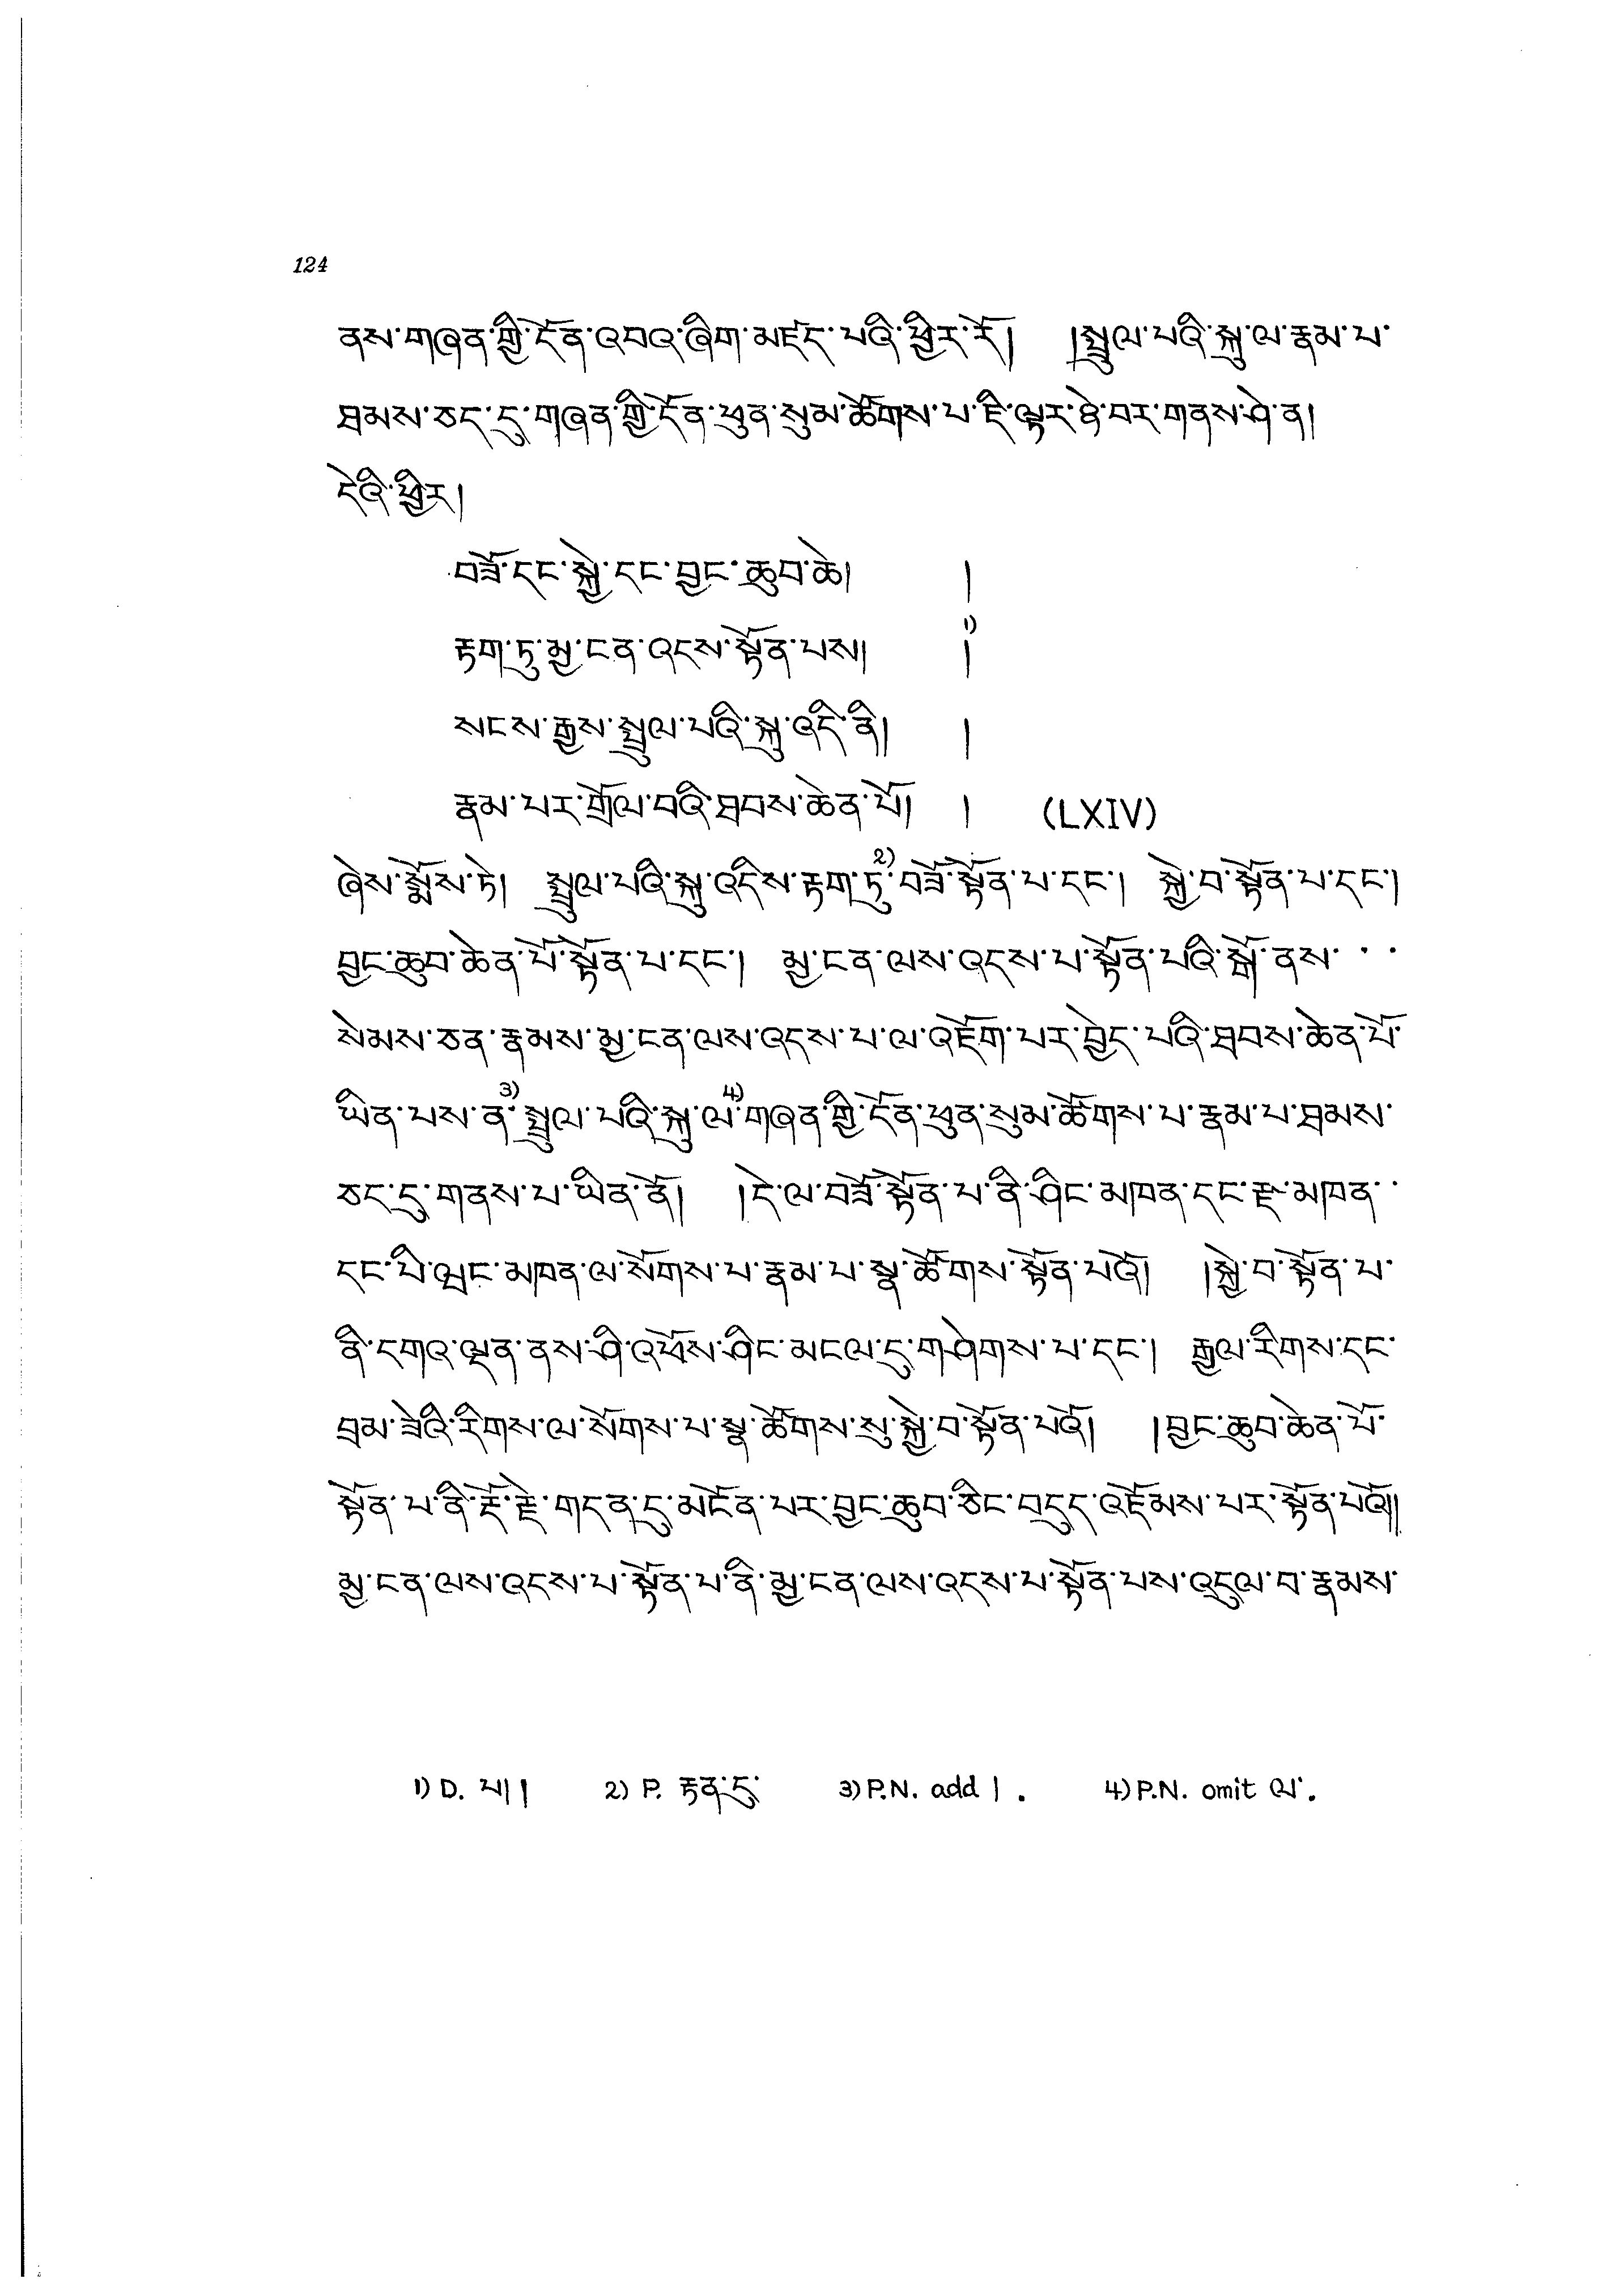 124
ནས་གཞན་གྱི་དོན་འབའ་ཞིག་མཛད་པའི་ཕྱིར་རོ། །སྤྲུལ་པའི་སྐུ་ལ་རྣམ་པ་
ཐམས་ཅད་དུ་གཞན་གྱི་དོན་ཕུན་སུམ་ཚོགས་པ་ཇི་ལྟར་ཉེ་བར་གནས་ཤེ་ན།
དེའི་ཕྱིར།
བཟོ་དང་སྐྱེ་དང་བྱང་ཆུབ་ཆེ། །
རྟག་ཏུ་མྱ་ངན་འདས་སྟོན་པས། །1)
སངས་རྒྱས་སྤྲུལ་པའི་སྐུ་འདི་ནི། །
རྣམ་པར་གྲོལ་བའི་ཐབས་ཆེན་པོ། ། (LXIV)
ཞེས་སྨོས་ཏེ། སྤྲུལ་པའི་སྐུ་འདིས་རྟག་ཏུ་2)བཟོ་སྟོན་པ་དང་། སྐྱེ་བ་སྟོན་པ་དང་།
བྱང་ཆུབ་ཆེན་པོ་སྟོན་པ་དང་། མྱ་ངན་ལས་འདས་པ་སྟོན་པའི་སྒོ་ནས་ ་ ་
སེམས་ཅན་རྣམས་མྱ་ངན་ལས་འདས་པ་ལ་འཇོག་པར་བྱེད་པའི་ཐབས་ཆེན་པོ་
ཡིན་པས་ན་3)སྤྲུལ་པའི་སྐུ་ལ་4)གཞན་གྱི་དོན་ཕུན་སུམ་ཚོགས་པ་རྣམ་པ་ཐམས་
ཅད་དུ་གནས་པ་ཡིན་ནོ། །དེ་ལ་བཟོ་སྟོན་པ་ནི་ཤིང་མཁན་དང་རྫ་མཁན་ ་
དང་པི་ཝང་མཁན་ལ་སོགས་པ་རྣམ་པ་སྣ་ཚོགས་སྟོན་པའོ། །སྐྱེ་བ་སྟོན་པ་
ནི་དགའ་ལྡན་ནས་ཤི་འཕོས་ཤིང་མངལ་དུ་གཤེགས་པ་དང་། རྒྱལ་རིགས་དང་
བྲམ་ཟེའི་རིགས་ལ་སོགས་པ་སྣ་ཚོགས་སུ་སྐྱེ་བ་སྟོན་པའོ། །བྱང་ཆུབ་ཆེན་པོ་
སྟོན་པ་ནི་རྡོ་རྗེ་གདན་དུ་མངོན་པར་བྱང་ཆུབ་ཅིང་བདུད་འཇོམས་པར་སྟོན་པའོ།།
མྱ་ངན་ལས་འདས་པ་སྟོན་པ་ནི་མྱ་ངན་ལས་འདས་པ་སྟོན་པས་འདུལ་བ་རྣམས་
1) D. པ།། 2) P. རྟན་དུ་ 3) P.N. add །. 4) P.N. omit ལ་.